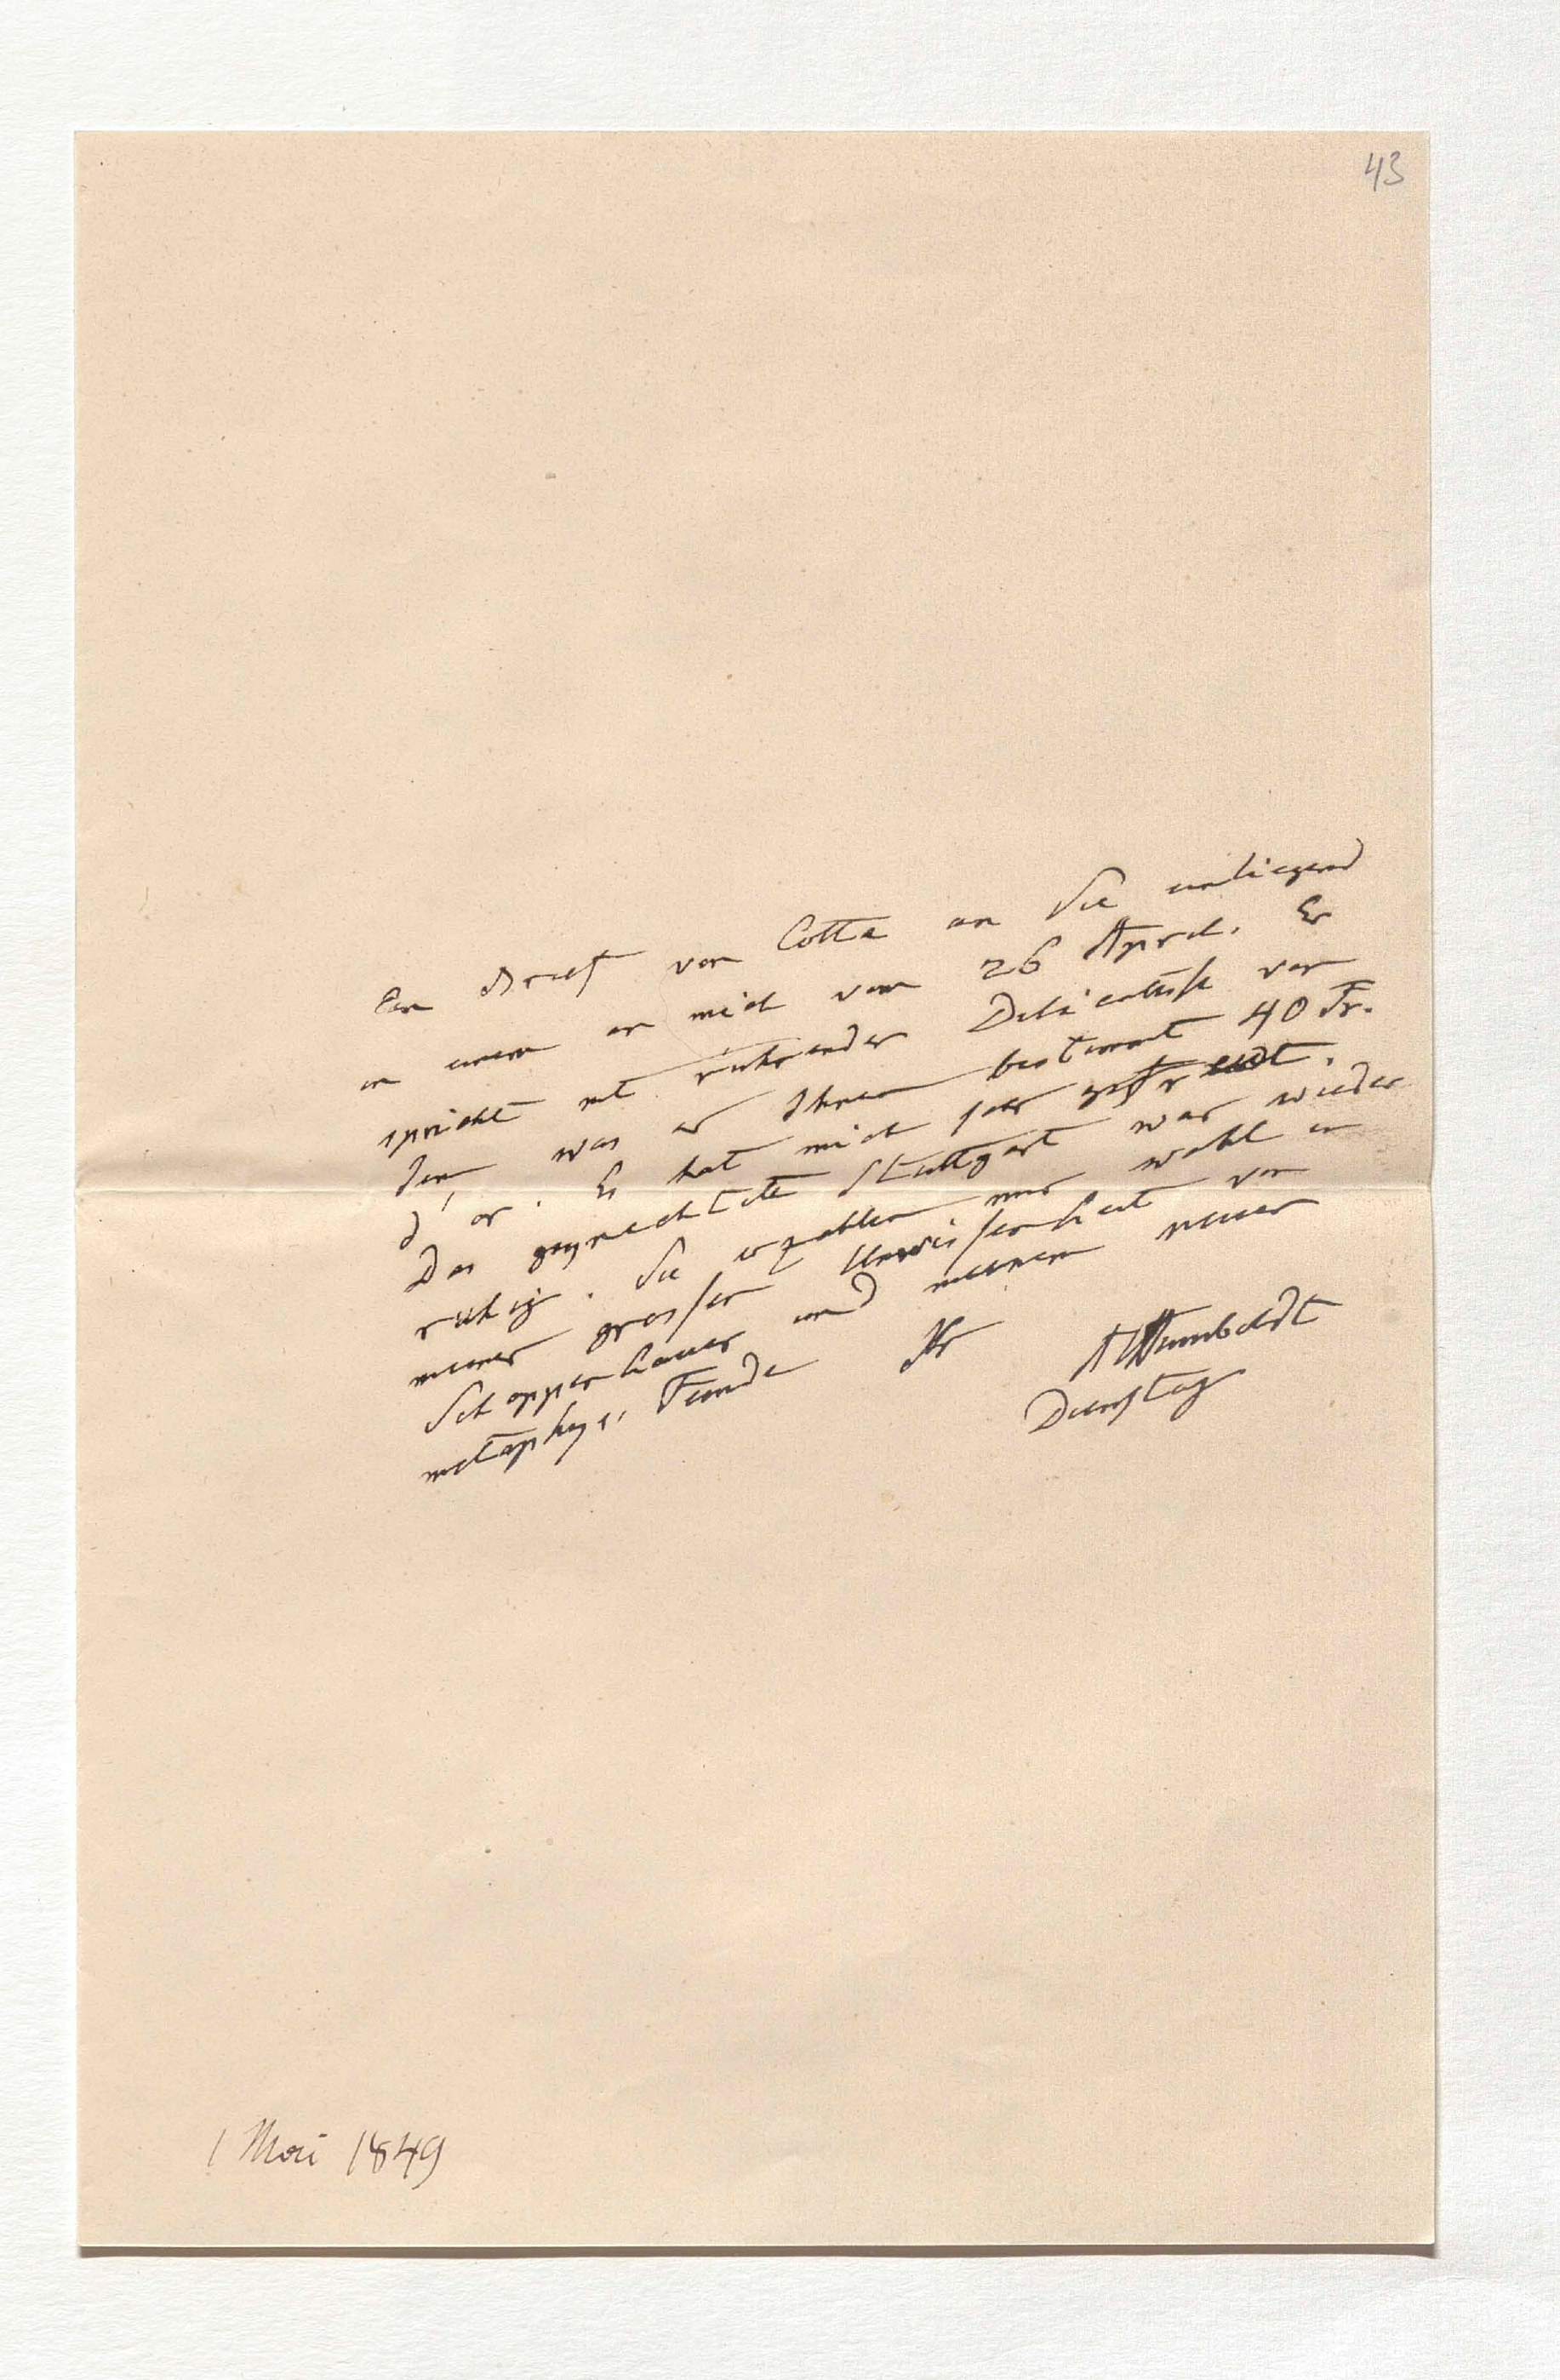 43
Ein Brief von Cotta an Sie einliegend
in einem an mich vom 26 April. Er
spricht mit rührender Delicatesse von
dem was er Ihnen bestimmt 40 Fr.
d'or. Es hat mich sehr gefreut.
Das Stuttgart war wieder
ruhig. Sie erzählen mir wohl in
meiner grossen Unwissenheit von
Schoppenhauer und meinem neuen
metaphys. Feinde Ihr
AHumboldt
Dienstag
1 Mai 1849